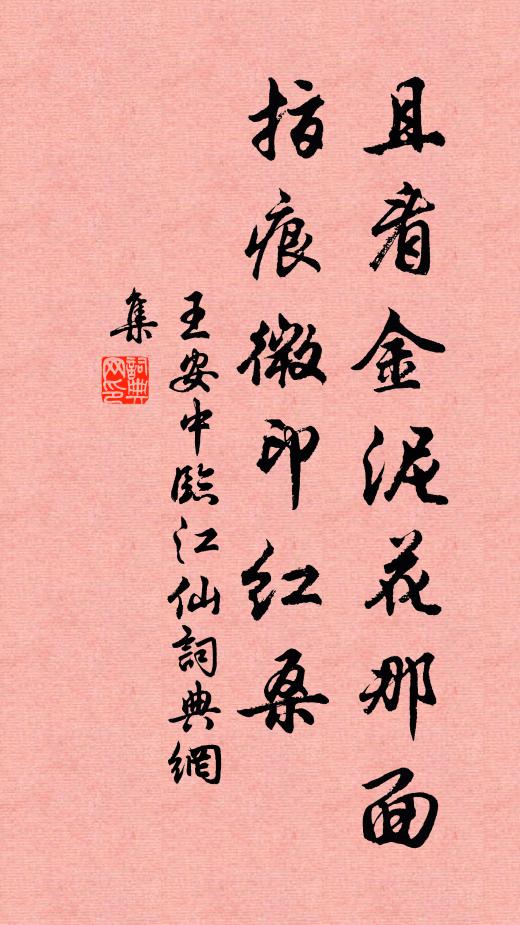 且看金泥花那面
指痕微印红桑
王安中臨江仙詞典網
集
詞典網印